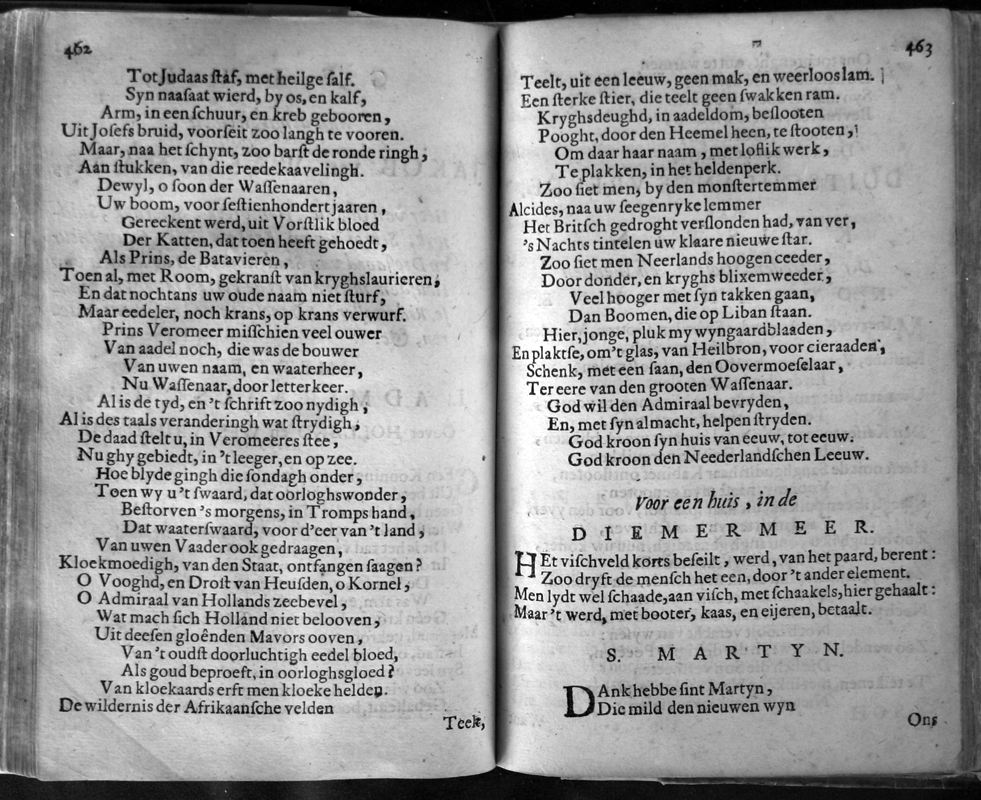 462
Tot Judaas ſtaf, met heilge ſalf.
Syn naaſaat wierd, by os, en kalf,
Arm, in een ſchuur, en kreb gebooren,
Uit Joſefs bruid, voorſeit zoo langh te vooren.
Maar, naa het ſchynt, zoo barſt de ronde ringh,
Aan ſtukken, van die reedekaavelingh.
Dewyl, o ſoon der Waſſenaaren,
Uw boom, voor ſeſtienhondert jaaren,
Gereckent werd, uit Vorſtlik bloed
Der Katten, dat toen heeft gehoedt,
Als Prins, de Batavieren,
Toen al, met Room, gekranſt van kryghslaurieren;
En dat nochtans uw oude naam niet ſturf,
Maar eedeler, noch krans, op krans verwurf.
Prins Veromeer miſſchien veel ouwer
Van aadel noch, die was de bouwer
Van uwen naam, en waaterheer,
Nu Waſſenaar, door letterkeer.
Al is de tyd, en 't ſchrift zoo nydigh,
Al is des taals veranderingh wat ſtrydigh,
De daad ſtelt u, in Veromeeres ſtee,
Nu ghy gebiedt, in 't leeger, en op zee.
Hoe blyde gingh die ſondagh onder,
Toen wy u 't ſwaard, dat oorloghswonder,
Beſtorven 's morgens, in Tromps hand,
Dat waaterſwaard, voor d'eer van 't land,
Van uwen Vaader ook gedraagen,
Kloekmoedigh, van den Staat, ontfangen ſaagen?
O Vooghd, en Droſt van Heuſden, o Kornel,
O Admiraal van Hollands zeebevel,
Wat mach ſich Holland niet belooven,
Uit deeſen gloênden Mavors ooven,
Van 't oudſt doorluchtigh eedel bloed,
Als goud beproeft, in oorloghsgloed?
Van kloekaards erft men kloeke helden.
De wildernis der Afrikaanſche velden
Teelt,
463
Teelt, uit een leeuw, geen mak, en weerloos lam.
Een ſterke ſtier, die teelt geen ſwakken ram.
Kryghsdeughd, in aadeldom, beſlooten
Pooght, door den Heemel heen, te ſtooten,
Om daar haar naam, met loflik werk,
Te plakken, in het heldenperk.
Zoo ſiet men, by den monſtertemmer
Alcides, naa uw ſeegenryke lemmer
Het Britſch gedroght verſlonden had, van ver,
's Nachts tintelen uw klaare nieuwe ſtar.
Zoo ſiet men Neerlands hoogen ceeder,
Door donder, en kryghs blixemweeder,
Veel hooger met ſyn takken gaan,
Dan Boomen, die op Liban ſtaan.
Hier, jonge, pluk my wyngaardblaaden,
En plaktſe, om 't glas, van Heilbron, voor cieraaden,
Schenk, met een ſaan, den Oovermoeſelaar,
Ter eere van den grooten Waſſenaar.
God wil den Admiraal bevryden,
En, met ſyn almacht, helpen ſtryden.
God kroon ſyn huis van eeuw, tot eeuw.
God kroon den Neederlandſchen Leeuw.
Voor een huis, in de
DIEMERMEER.
HEt viſchveld korts beſeilt, werd, van het paard, berent:
Zoo dryft de menſch het een, door 't ander element.
Men lydt wel ſchaade, aan viſch, met ſchaakels, hier gehaalt:
Maar 't werd, met booter, kaas, en eijeren, betaalt.
S. MARTYN.
DAnk hebbe ſint Martyn,
Die mild den nieuwen wyn
Ons